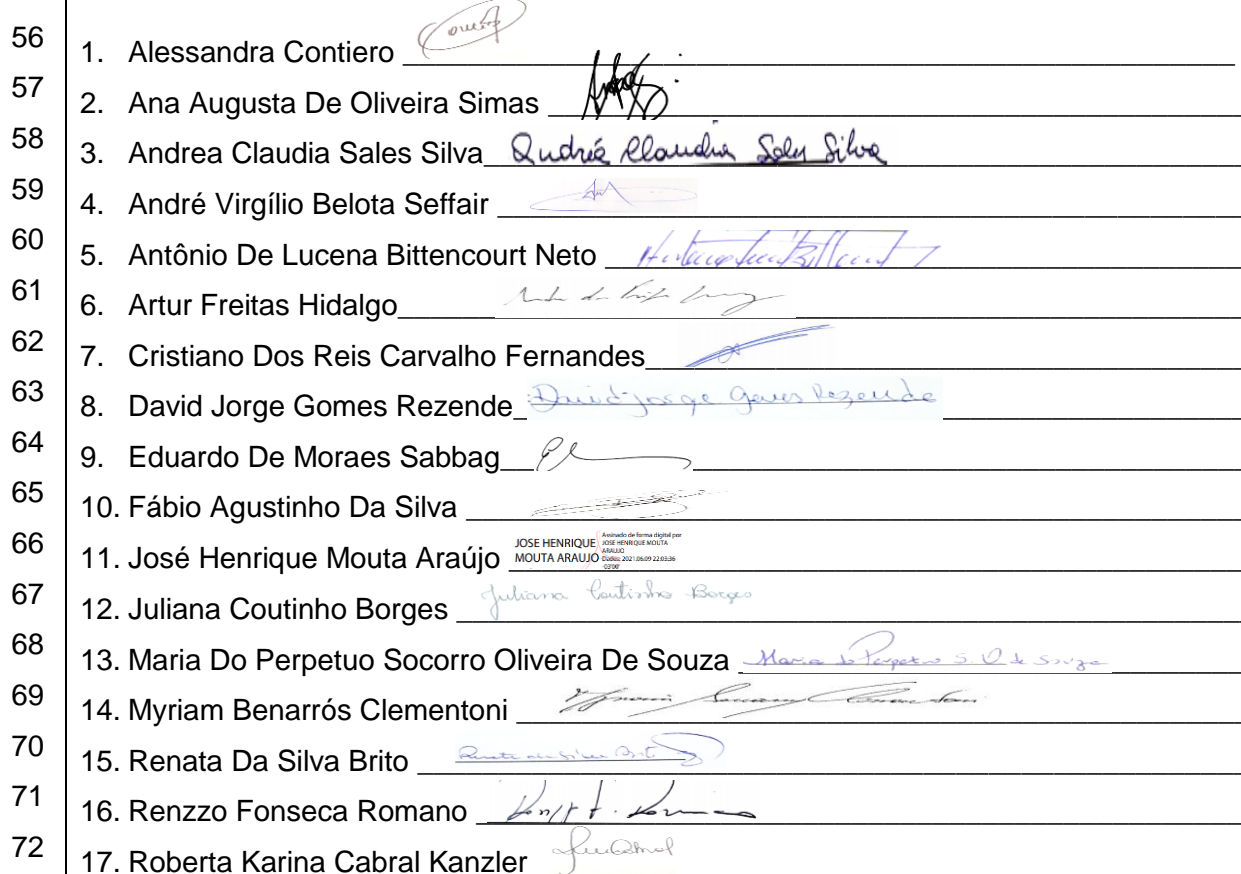 56 1. Alessandra Contiero
57 2. Ana Augusta De Oliveira Simas
58 3. Andrea Claudia Sales Silva Andréa Claudia Sales Silva
59 4. André Virgílio Belota Seffair
60 5. Antônio De Lucena Bittencourt Neto
61 6. Artur Freitas Hidalgo
62 7. Cristiano Dos Reis Carvalho Fernandes
63 8. David Jorge Gomes Rezende David Jorge Gomes Rezende
64 9. Eduardo De Moraes Sabbag
65 10. Fábio Agustinho Da Silva
66 11. José Henrique Mouta Araújo JOSE HENRIQUE MOUTA ARAUJO Assinado de forma digital por JOSE HENRIQUE MOUTA ARAUJO Dados: 2021.06.09 22:03:36 -03'00'
67 12. Juliana Coutinho Borges Juliana Coutinho Borges
68 13. Maria Do Perpetuo Socorro Oliveira De Souza Maria do Perpetuo S. O. de Souza
69 14. Myriam Benarrós Clementoni
70 15. Renata Da Silva Brito Renata da Silva Brito
71 16. Renzzo Fonseca Romano
72 17. Roberta Karina Cabral Kanzler